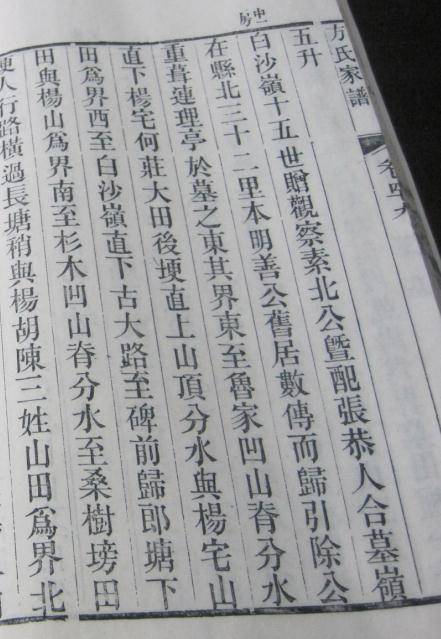 方氏家譜
卷四九
中一房
五升
白沙嶺十五世贈觀察素北公曁配張恭人合墓嶺
在縣北三十二里本明善公舊居數傳而歸引除公
重葺連理亭於墓之東其界東至魯家凹山脊分水
直下楊宅何莊大田後埂直上山頂分水與楊宅山
田爲界西至白沙嶺直下古大路至碑前歸郎塘下
田與楊山爲界南至杉木凹山脊分水至桑樹塝田
埂人行路橫過長塘稍與楊胡陳三姓山田爲界北